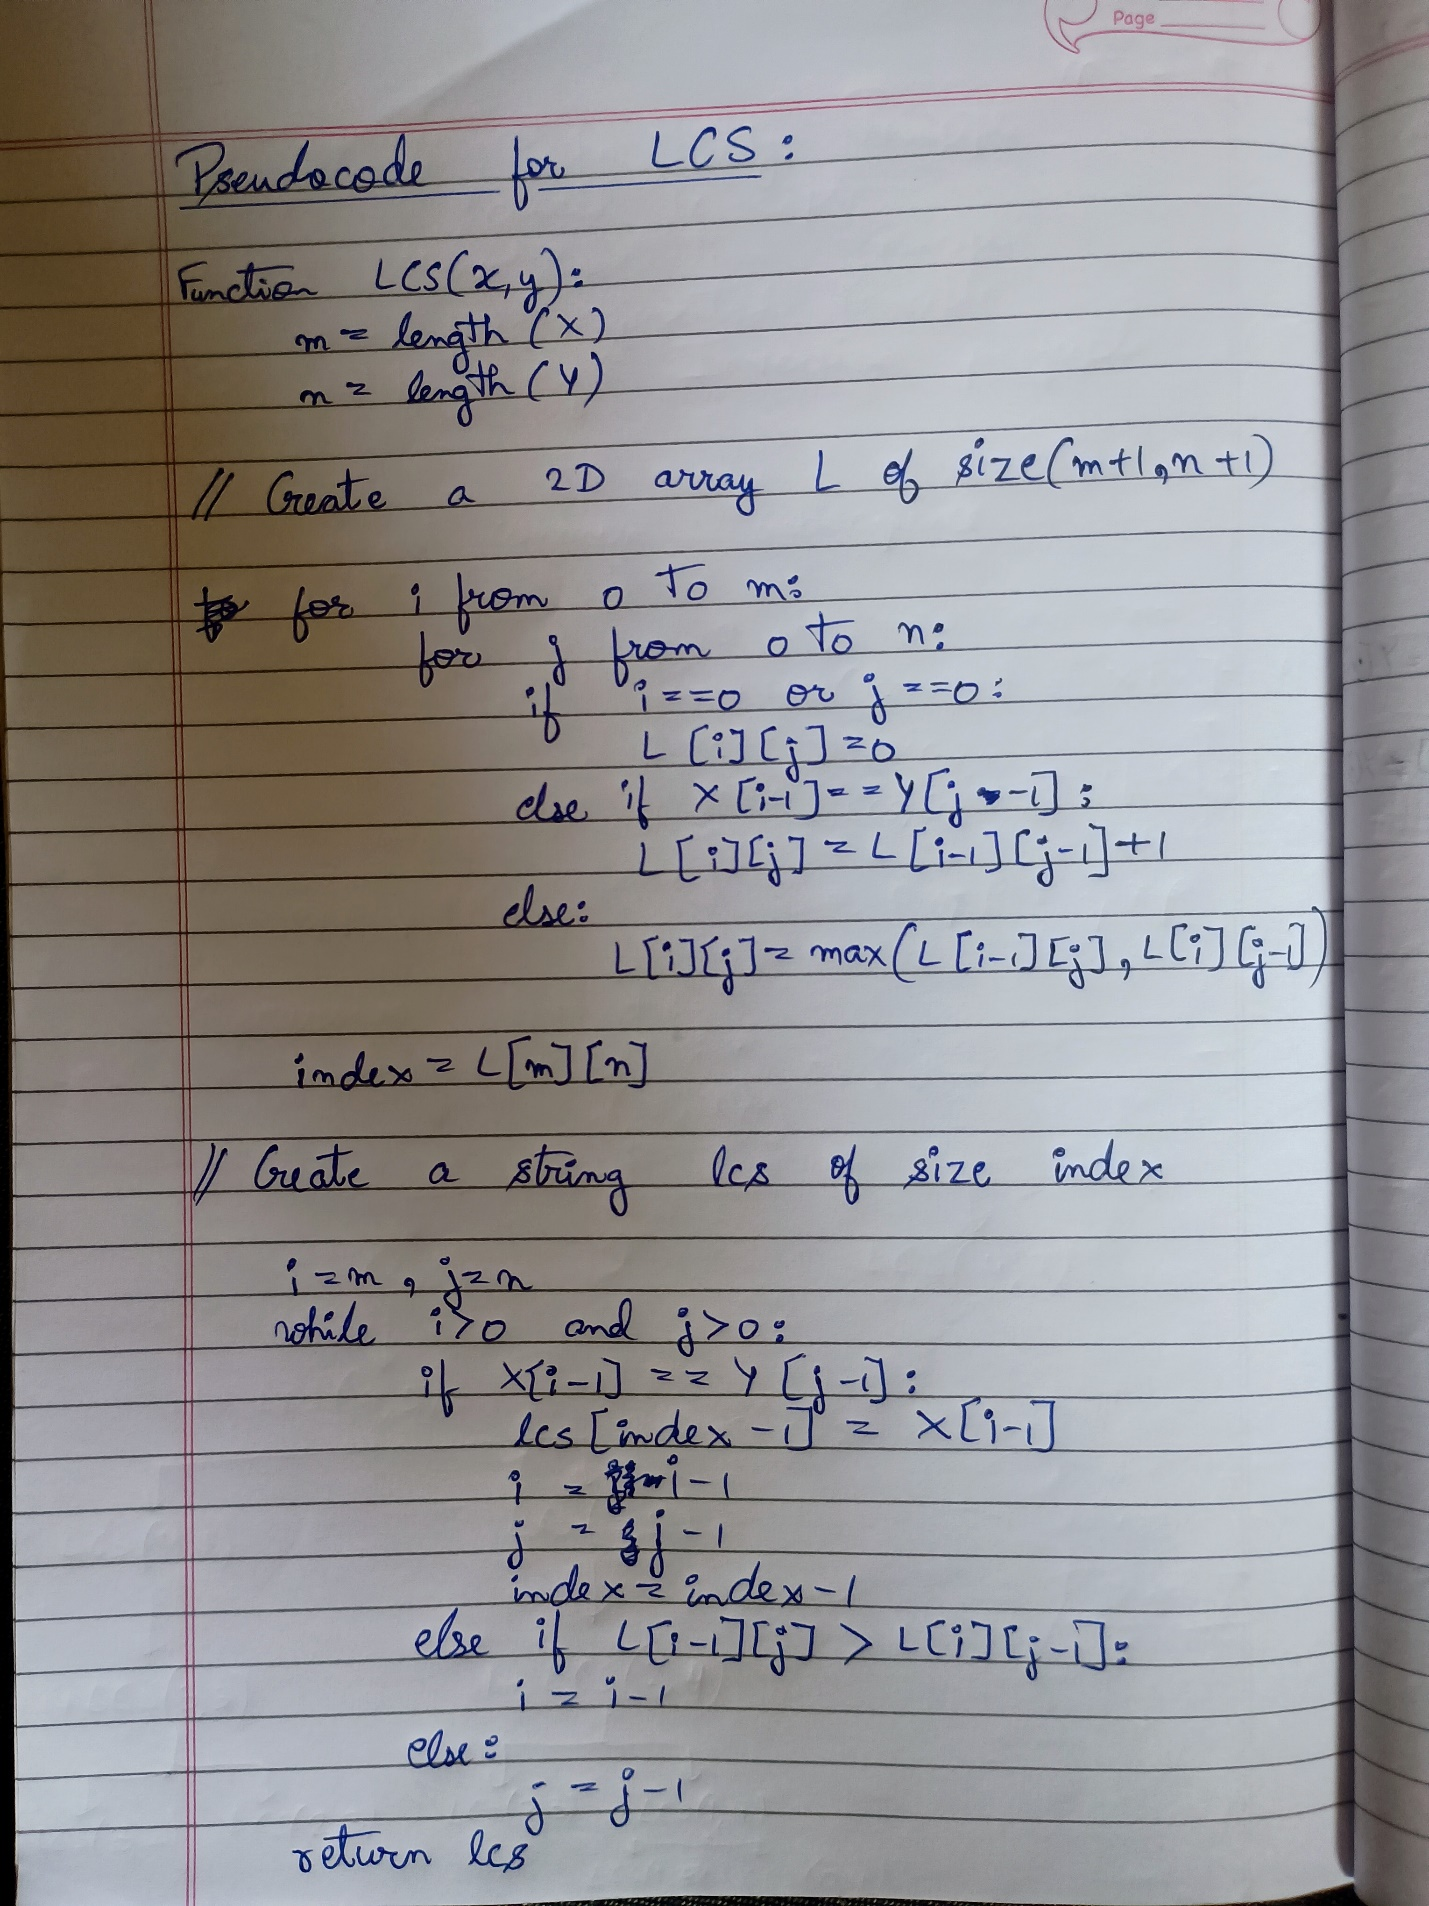 Page
Pseudocode for LCS:
Function LCS(x,y):
m = length (X)
n = length (Y)
// Create a 2D array L of size(m+1,n+1)
for i from 0 to m:
for j from 0 to n:
if i==0 or j==0:
L[i][j]=0
else if X[i-1]==Y[j-1]:
L[i][j]=L[i-1][j-1]+1
else:
L[i][j]=max(L[i-1][j], L[i][j-1])
index = L[m][n]
// Create a string lcs of size index
i=m, j=n
while i>0 and j>0:
if X[i-1]==Y[j-1]:
lcs[index-1] = X[i-1]
i = i-1
j = j-1
index = index-1
else if L[i-1][j] > L[i][j-1]:
i = i-1
else:
j = j-1
return lcs